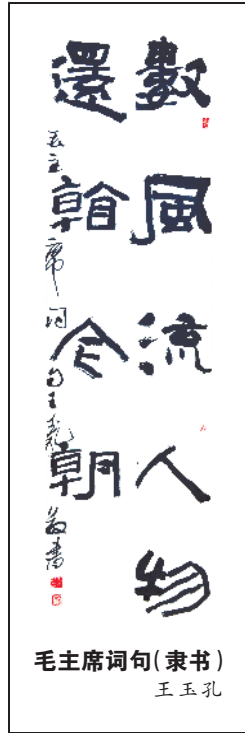 數風流人物
還看今朝
毛主席词句王玉孔敬書
毛主席词句(隶书)
王玉孔